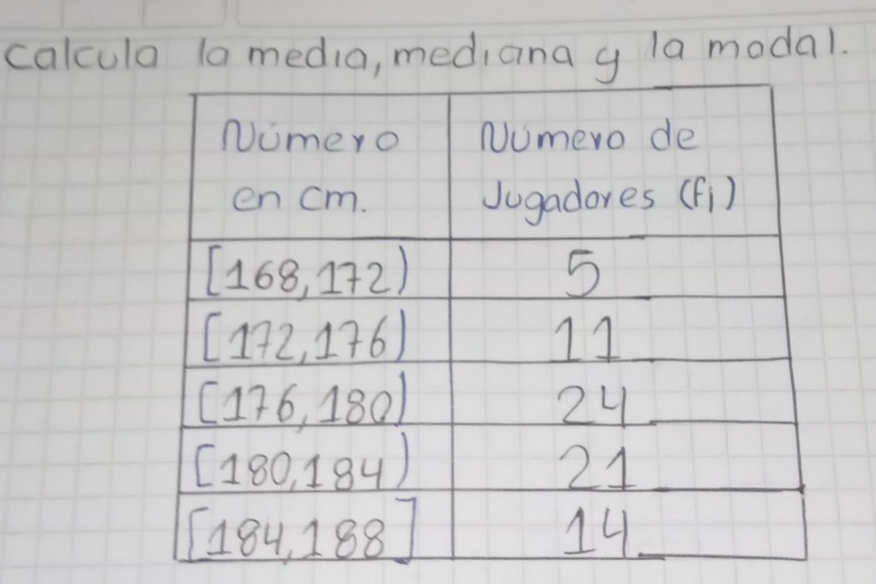 calcula la media, mediana y la modal.
Número en cm. | Número de Jugadores (fi)
[168,172) | 5
[172,176) | 11
[176,180) | 24
[180,184) | 21
[184,188] | 14